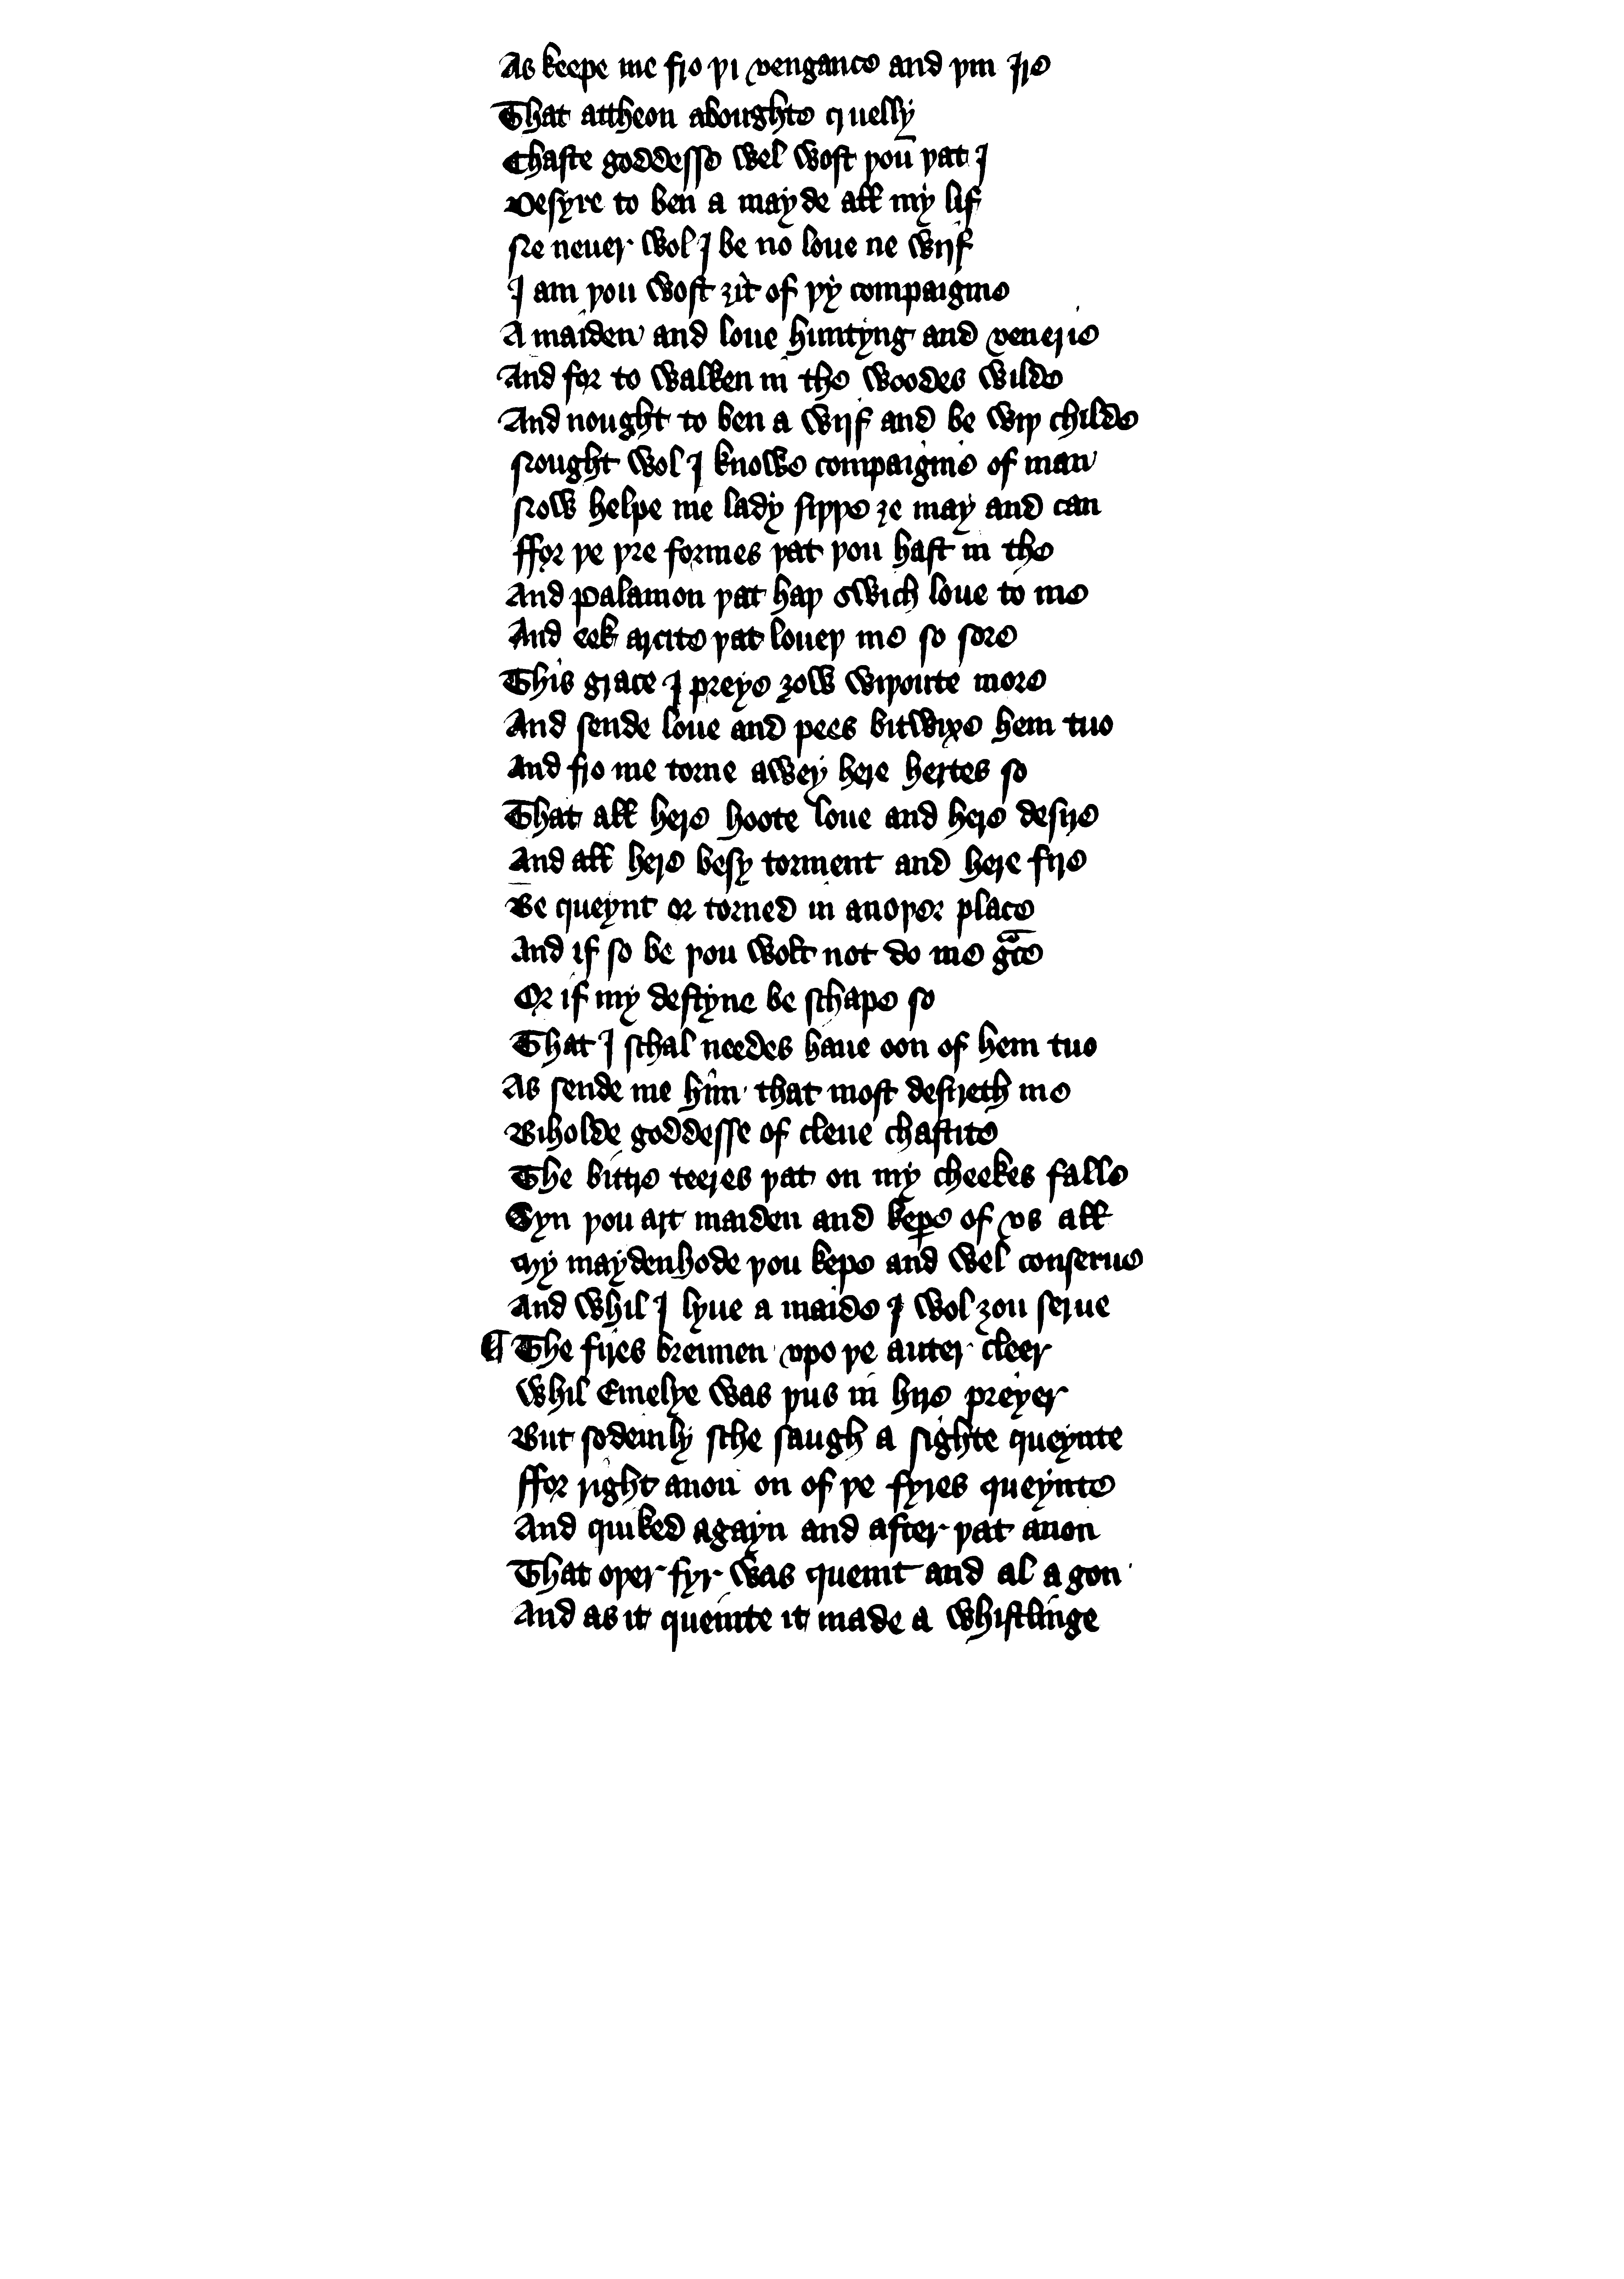 As keepe me fro þi vengance and þin Ire
That attheon aboughte cruelly
Chaste goddesse wel wost þou þat I
Desyre to ben a mayde all my lif
Ne neuer wol I be no loue ne wyf
I am þou wost ȝit of þy compaignie
A maiden and loue huntyng and venerie
And for to walken in the woodes wilde
And nought to ben a wyf and be wiþ childe
Nought wol I knowe compaignie of man
Now helpe me lady siþþe ȝe may and can
ffor þe þre formes þat þou hast in the
And Palamon þat haþ swich loue to me
And eek arcite þat loueþ me so sore
This grace I preye ȝow wiþoute more
And sende loue and pees bitwixe hem tuo
And fro me torne awey here hertes so
That all here hoote loue and here desire
And all here besy torment and here fire
Be queynt or torned in anoþer place
And if so be þou wolt not do me gᵃce
Or if my destyne be schape so
That I schal needes haue oon of hem tuo
As sende me him that most desireth me
Biholde goddesse of clene chastite
The bittre teeres þat on my cheekes falle
Syn þou art maiden and keper of vs all
My maydenhode þou kepe and wel conserue
And whil I lyue a maide I wol ȝou serue
¶ The fires brennen vpo þe auter cleer
Whil Emelye was þus in hire preyer
But sodeinly sche saugh a sighte queynte
ffor right anon on of þe fyres queynte
And quiked agayn and after þat anon
That oþer fyr was queint and al agon
And as it queinte it made a whistlinge